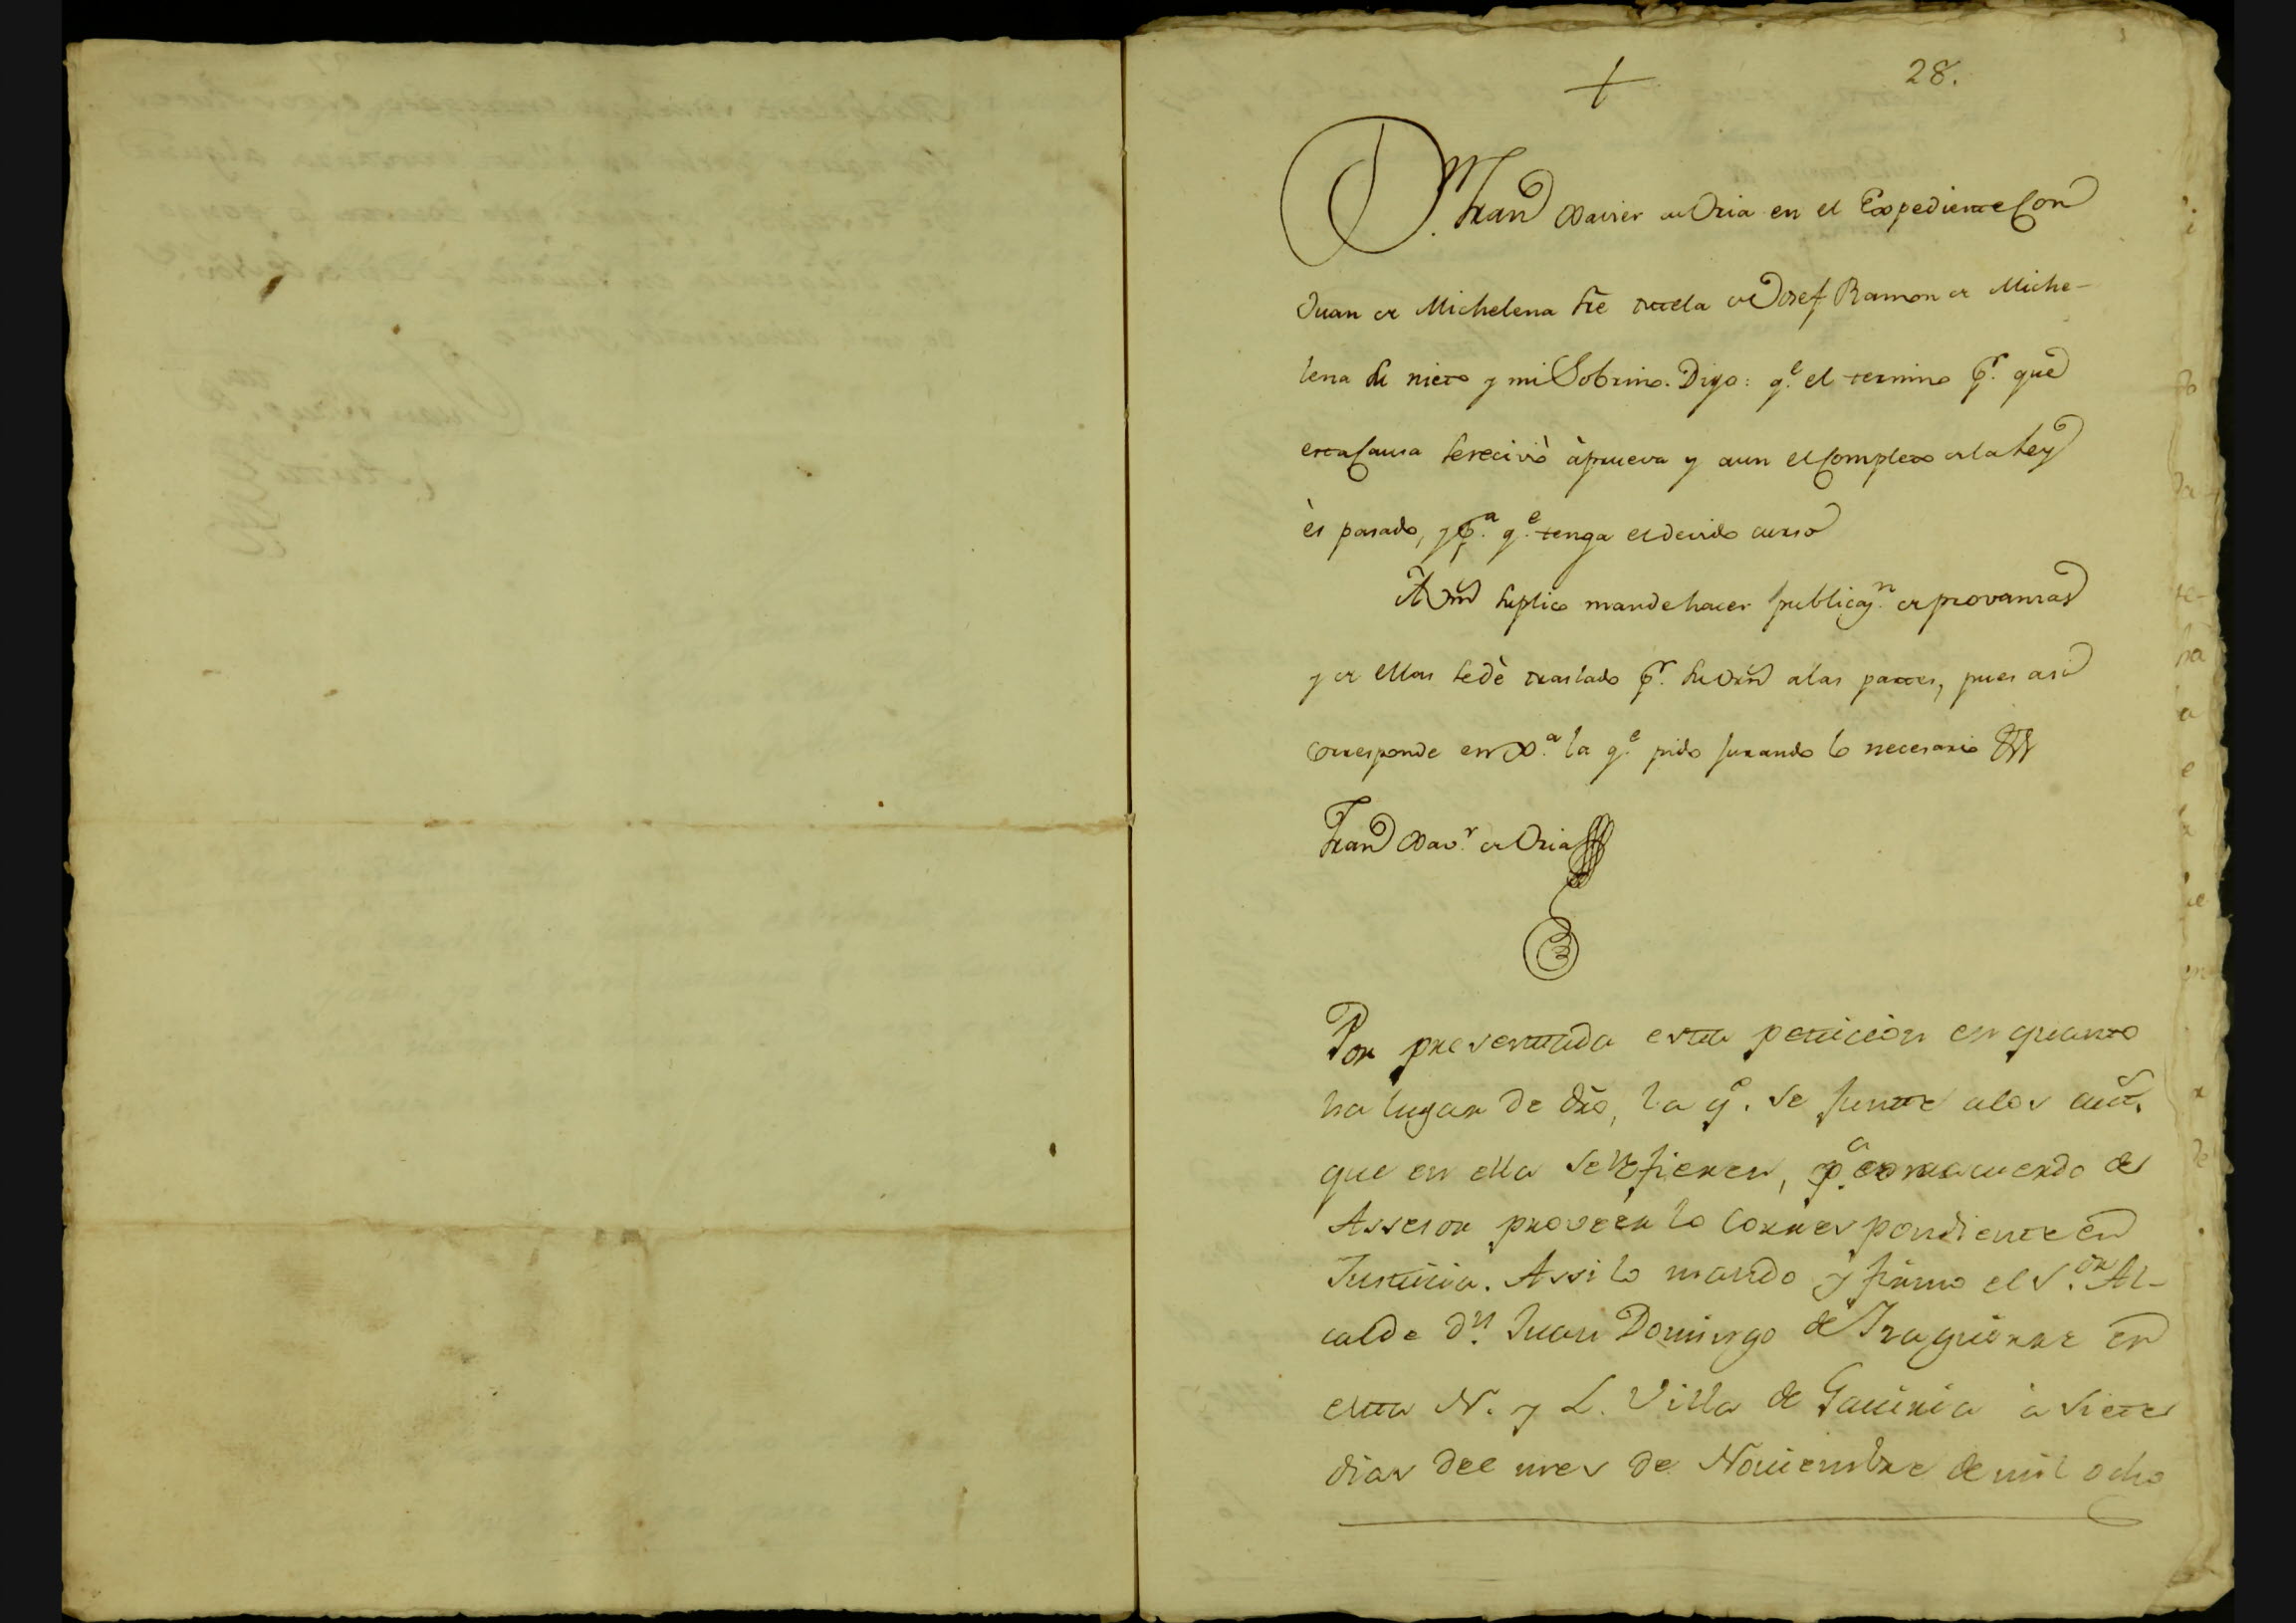 28.
D. Fran Xavier de Oria en el Expediente Con
Juan de Michelena sre tutela de Josef Ramon de Miche-
lena su nieto y mi Sobrino. Digo: q.e el termino p.r que
esta Causa se recivió à prueva y aun el Completo de la Ley
ès pasado, y p.a q.e tenga el devido curso
A Vmd suplico mande hacer publicaz.n de provanzas
y de ellas se dè traslado p.r su orn a las partes, pues asi
corresponde en Xa. la q.e pido jurando lo necesario &
Fran Xav.r de Oria
Por presentada esta peticion en quanto
ha lugar de dro, la q.e se junte a los aut.s
que en ella se refieren, p.a con acuerdo de
Assesor proveer lo correspondiente en
Justicia. Assi lo mando y firmo el S.or Al-
calde d.n Juan Domingo de Yzaguirre en
esta N. y L. Villa de Gaviria à siete
dias del mes de Noviembre de mil ocho